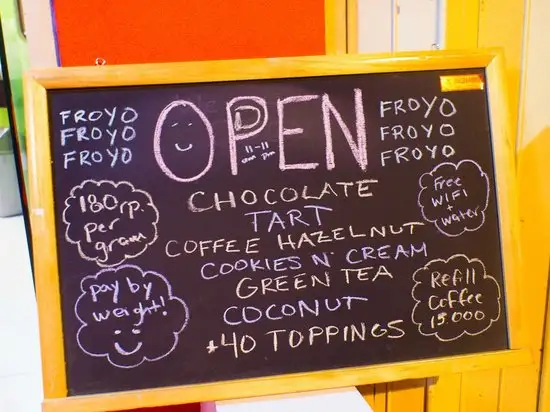 FROYO
FROYO
FROYO
OPEN
11-11
am pm
FROYO
FROYO
FROYO
CHOCOLATE
TART
COFFEE HAZELNUT
COOKIES N' CREAM
GREEN TEA
COCONUT
+40 TOPPINGS
180 rp.
per
gram
pay by
weight!
Free
WiFi
+
water
Refill
Coffee
15.000